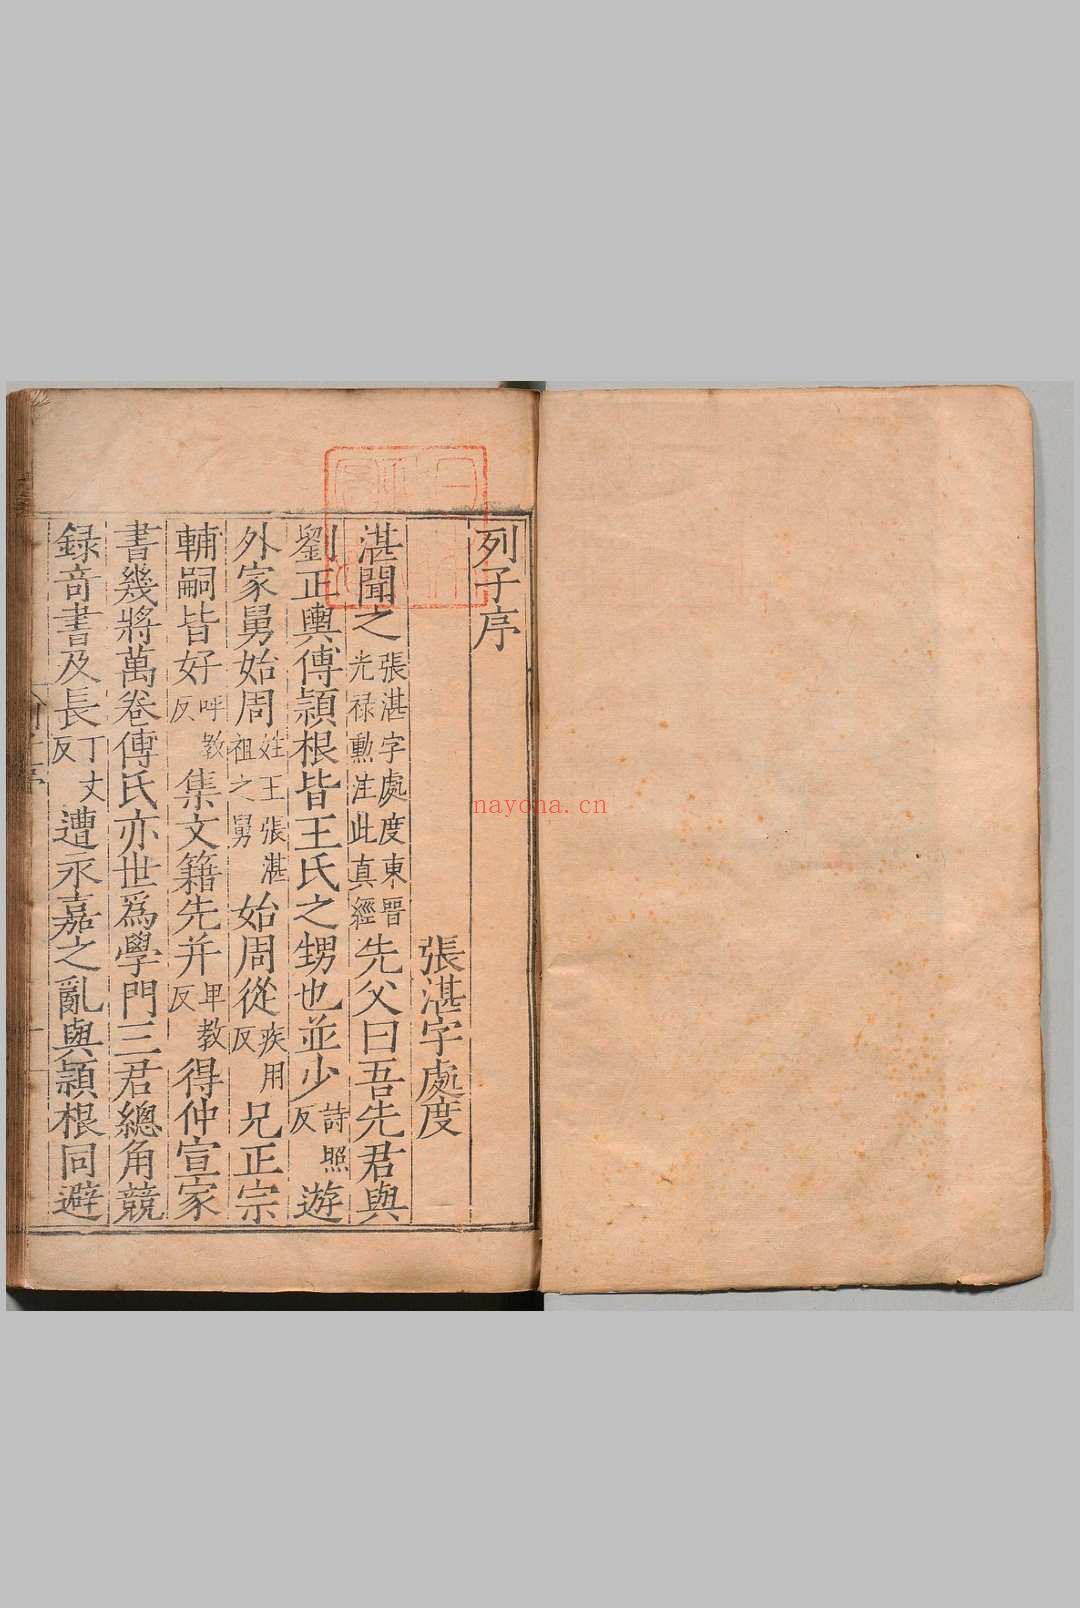 列子序
張湛字處度
湛聞之張湛字處度東晉光禄勲注此真經先父曰吾先君與
劉正輿傅頴根皆王氏之甥也並少詩照反遊
外家舅始周姓王張湛祖之舅始周從疾用反兄正宗
輔嗣皆好呼教反集文籍先并卑教反得仲宣家
書幾將萬卷傅氏亦世爲學門三君總角競
録竒書及長丁丈反遭永嘉之亂與頴根同避
nayona.cn